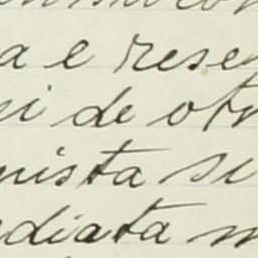 a e rese
si de otr
nista si
ediata m